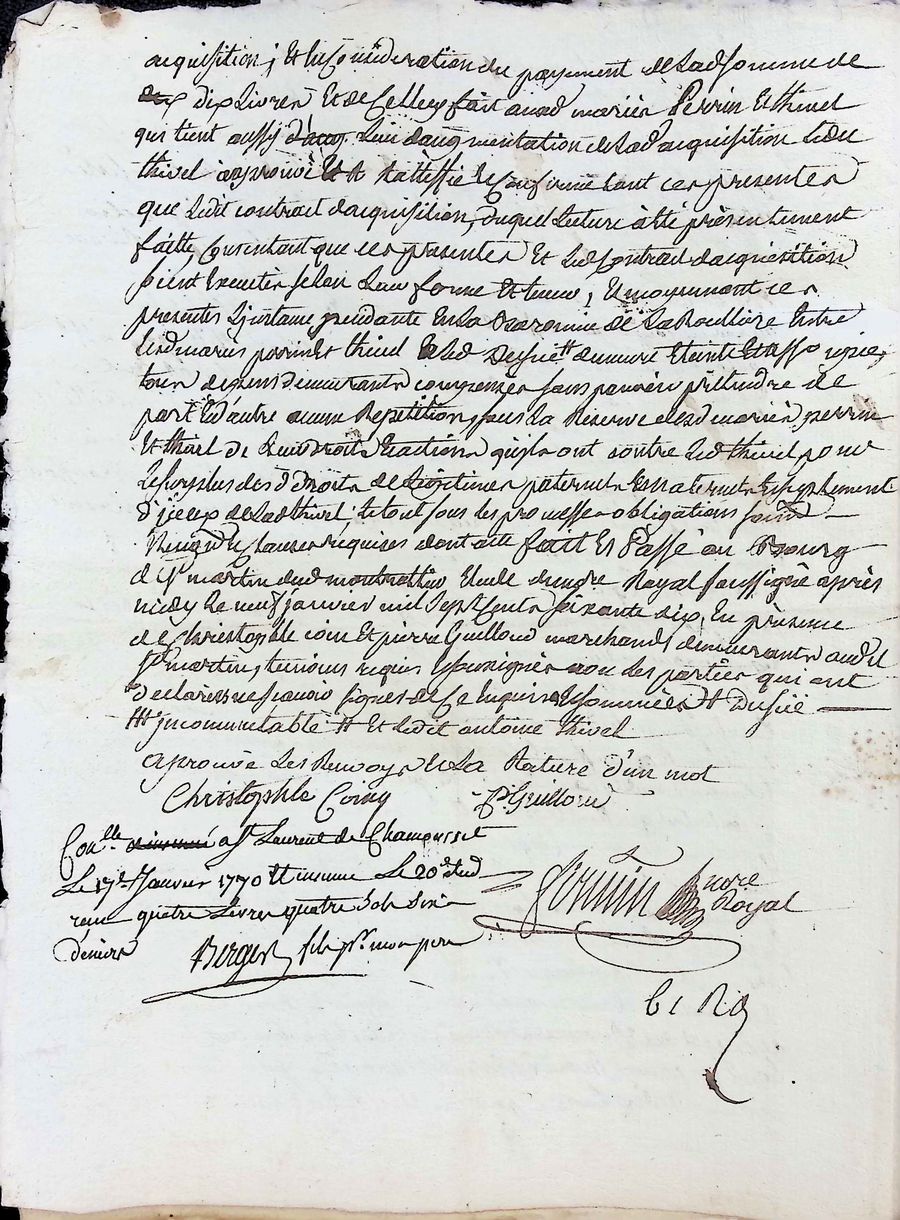 acquisition ; Et en Consideration du payement de Lad Somme de
dix Livres Et de Celle fait auxd mariés Perrin Et thivel
qui tient aussy Lieu daugmentation de Lad acquisition Led
thivel approuvé Et Ratiffie Et Confirme tant ces presentes
que Ledit contract dacquisition, duquel Lecture a été présentement
faitte, Consentant que ces presentes Et Led Contract dacquisition
soient Executés selon Leur forme Et teneur ; Et moyennant ces
presentes L'jnstance pendante En La Baronnie de La Roulliere Entre
Lesd mariés perrin Et thivel Et Led Dusuc demeure Eteinte Et assopie,
tous depens demeurants compensés sans pouvoir prétendre de
part Et d'autre aucune Repetition, sous La Reserve desd mariés perrin
Et thivel de Leurs Droits Et actions qu'ils ont contre Led thivel pour
Le surplus desd Droits de Legitimes paternels Et maternels Et suplement
d'jceux de Lad thivel ; Le tout sous les promesses obligations
Renonce Et Clauses requises dont acte fait Et Passé au Bourg
de St martin dud Etude du nore Royal soussigné après
midy Le neuf janvier mil Sept Cents soixante dix, En présence
de Christophle coing Et pierre Guilloud marchands demeurants audit
St martin, temoins requis Et soussignés non les parties qui ont
Declaré ne scavoir signer de Ce Enquises Et Sommées # Dusuc
### jncommutable # Et Ledit antoine thivel
approuvé Les Renvoys Et La Rature d'un mot
Christophle Coing P. Guilloud
Conlle a St Laurent de Chamousset
Le 17e Janvier 1770 Et insinué Le 20 dud
recu quatre Livres quatre sols six
deniers
Berger fils pr mon pere
nore
Royal